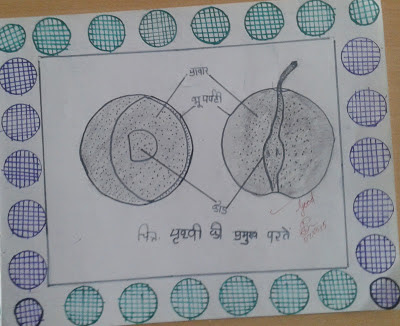 प्रावार
भू पर्पटी
क्रोड
चित्र पृथ्वी की प्रमुख परतें